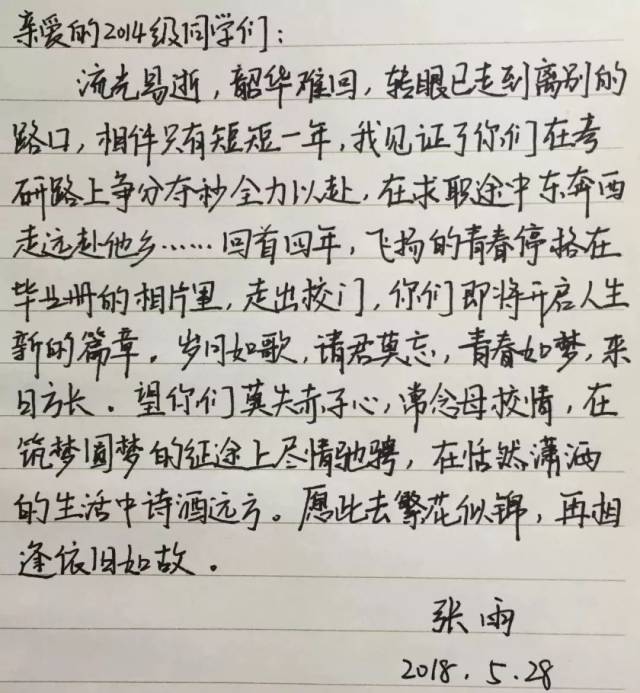 亲爱的2014级同学们:
流光易逝,韶华难回,转眼已走到离别的
路口,相伴只有短短一年,我见证了你们在考
研路上争分夺秒全力以赴,在求职途中东奔西
走远赴他乡……回首四年,飞扬的青春停格在
毕业册的相片里,走出校门,你们即将开启人生
新的篇章。岁月如歌,请君莫忘,青春如梦,来
日方长。望你们莫失赤子心,常念母校情,在
筑梦圆梦的征途上尽情驰骋,在恬然潇洒
的生活中诗酒远方。愿此去繁花似锦,再相
逢依旧如故。
张雨
2018.5.28